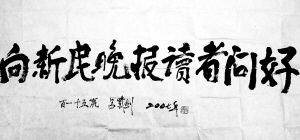 向新民晚报读者问好
百一十五岁 2005年